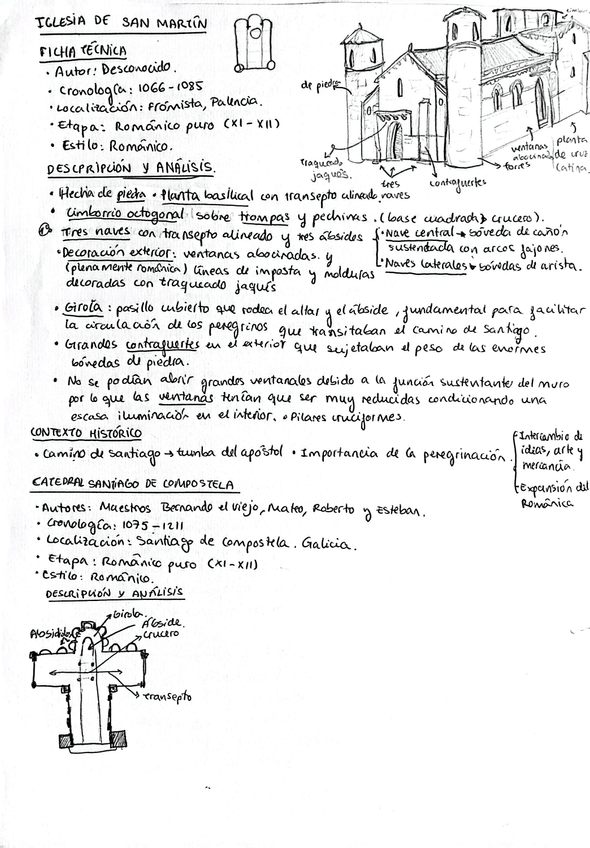 IGLESIA DE SAN MARTÍN
FICHA TÉCNICA
· Autor: Desconocido.
· Cronología: 1066-1085
· Localización: Frómista, Palencia.
· Etapa: Románico puro (XI-XII)
· Estilo: Románico.
de piedra
traqueado jaqués.
tres naves
contrafuertes
torres
ventanas abocinadas
planta de cruz latina.
DESCPRIPCIÓN Y ANÁLISIS.
· Hecha de piedra · Planta basilical con transepto alineado
· Cimborrio octogonal sobre trompas y pechinas. (base cuadrada → crucero).
Tres naves con transepto alineado y tres ábsides
· Nave central → bóveda de cañón
sustendada con arcos fajones.
· Naves laterales → bóvedas de arista.
· Decoración exterior: ventanas abocinadas. y
(plenamente románica) líneas de imposta y molduras
decoradas con traqueado jaqués
· Girola: pasillo cubierto que rodea el altar y el ábside, fundamental para facilitar
la circulación de los peregrinos que transitaban el camino de Santiago.
· Grandes contrafuertes en el exterior que sujetaban el peso de las enormes
bóvedas de piedra.
· No se podían abrir grandes ventanales debido a la función sustentante del muro
por lo que las ventanas tenían que ser muy reducidas condicionando una
escasa iluminación en el interior. · Pilares cruciformes.
CONTEXTO HISTÓRICO
· Camino de Santiago → tumba del apóstol · Importancia de la peregrinación
· Intercambio de
ideas, arte y
mercancía.
· Expansión del
Románica
CATEDRAL SANTIAGO DE COMPOSTELA
· Autores: Maestros Bernando el viejo, Mateo, Roberto y Esteban.
· Cronología: 1075-1211
· Localización: Santiago de Compostela. Galicia.
· Etapa: Románico puro (XI-XII)
· Estilo: Románico.
DESCRIPCIÓN Y ANÁLISIS
Girola
Ábside.
Absidiolos
crucero
transepto